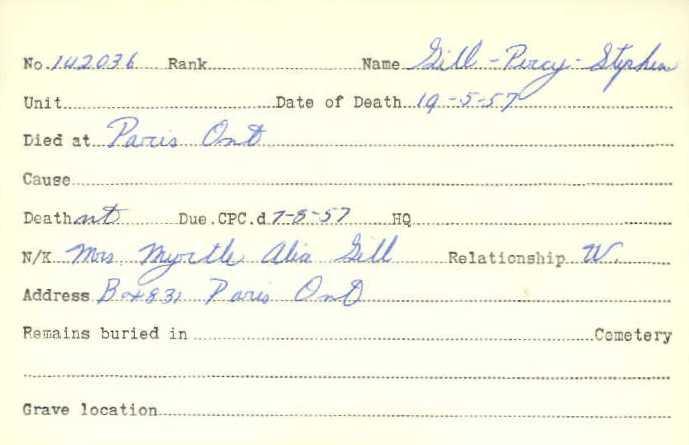 No. 142036 Rank Name Gill - Percy - Stephen
Unit Date of Death 19-5-57
Died at Paris Ont
Cause
Death nt Due.CPC.d 7-8-57 HQ
N/K Mrs Myrtle Gill Relationship W.
Address Box 831 Paris Ont
Remains buried in Cemetery
Grave location